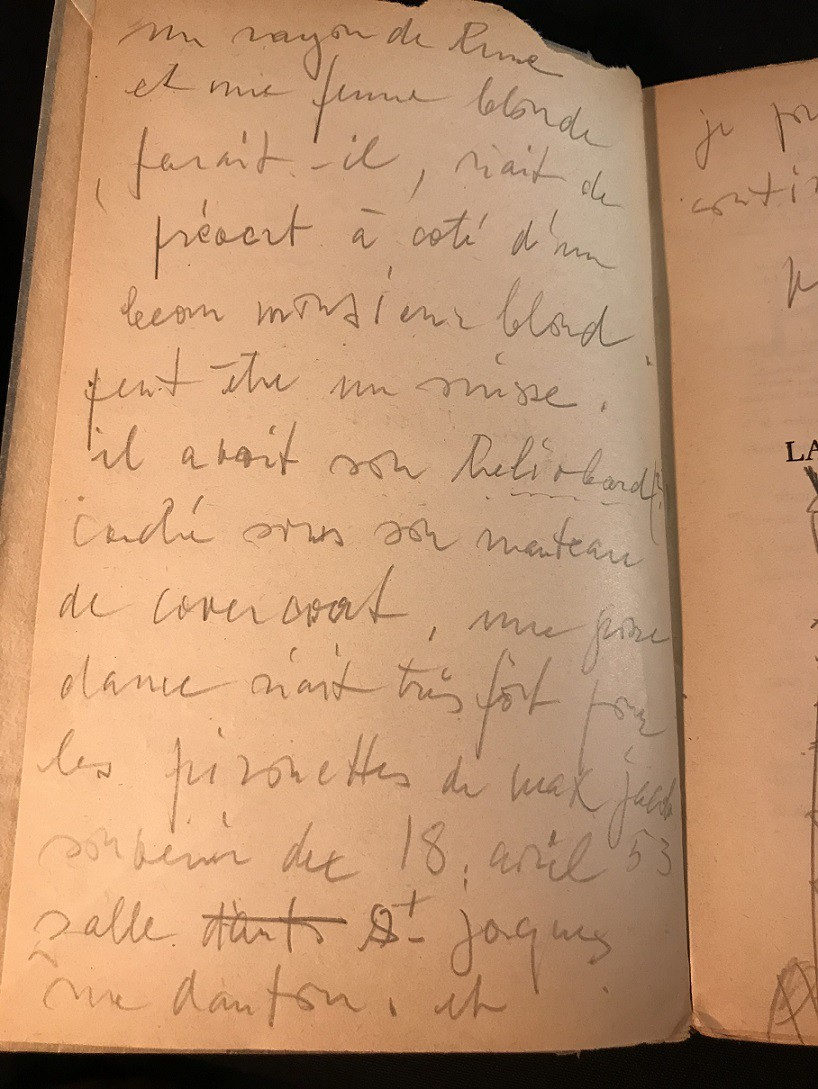 un rayon de lune
et une femme blonde
, parait-il, riait de
prévert à coté d'un
beau monsieur blond.
peut-être un suisse.
il avait son
caché sous son manteau
de covercoat, une
dame riait très fort pour
les pirouettes de max jacob
souvenir du 18. avril 53
salle St jacques
rue danton. et
je
LA